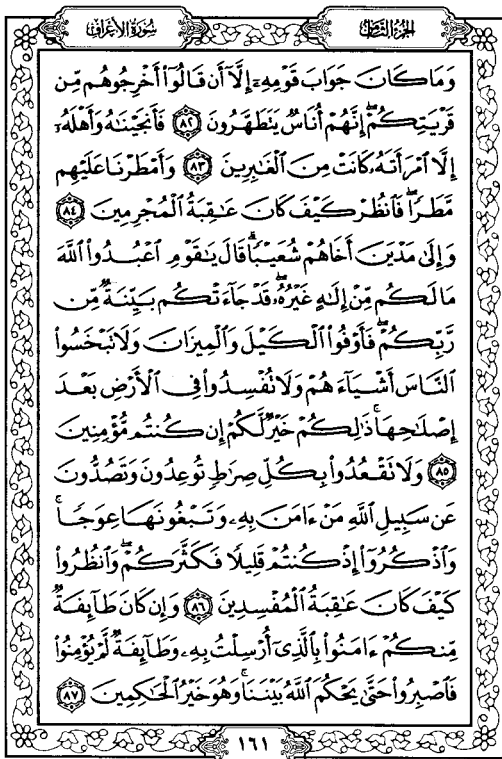 سُورَةُ الأَعْرَافِ
الجُزْءُ الثَّامِنُ
وَمَا كَانَ جَوَابَ قَوْمِهِۦٓ إِلَّآ أَن قَالُوٓا۟ أَخْرِجُوهُم مِّن
قَرْيَتِكُمْ ۖ إِنَّهُمْ أُنَاسٌ يَتَطَهَّرُونَ ﴿٨٢﴾ فَأَنجَيْنَٰهُ وَأَهْلَهُۥٓ
إِلَّا ٱمْرَأَتَهُۥ كَانَتْ مِنَ ٱلْغَٰبِرِينَ ﴿٨٣﴾ وَأَمْطَرْنَا عَلَيْهِم
مَّطَرًا ۖ فَٱنظُرْ كَيْفَ كَانَ عَٰقِبَةُ ٱلْمُجْرِمِينَ ﴿٨٤﴾
وَإِلَىٰ مَدْيَنَ أَخَاهُمْ شُعَيْبًا ۗ قَالَ يَٰقَوْمِ ٱعْبُدُوا۟ ٱللَّهَ
مَا لَكُم مِّنْ إِلَٰهٍ غَيْرُهُۥ ۖ قَدْ جَآءَتْكُم بَيِّنَةٌ مِّن
رَّبِّكُمْ ۖ فَأَوْفُوا۟ ٱلْكَيْلَ وَٱلْمِيزَانَ وَلَا تَبْخَسُوا۟
ٱلنَّاسَ أَشْيَآءَهُمْ وَلَا تُفْسِدُوا۟ فِى ٱلْأَرْضِ بَعْدَ
إِصْلَٰحِهَا ۚ ذَٰلِكُمْ خَيْرٌ لَّكُمْ إِن كُنتُم مُّؤْمِنِينَ
﴿٨٥﴾ وَلَا تَقْعُدُوا۟ بِكُلِّ صِرَٰطٍ تُوعِدُونَ وَتَصُدُّونَ
عَن سَبِيلِ ٱللَّهِ مَنْ ءَامَنَ بِهِۦ وَتَبْغُونَهَا عِوَجًا ۚ
وَٱذْكُرُوٓا۟ إِذْ كُنتُمْ قَلِيلًا فَكَثَّرَكُمْ ۖ وَٱنظُرُوا۟
كَيْفَ كَانَ عَٰقِبَةُ ٱلْمُفْسِدِينَ ﴿٨٦﴾ وَإِن كَانَ طَآئِفَةٌ
مِّنكُمْ ءَامَنُوا۟ بِٱلَّذِىٓ أُرْسِلْتُ بِهِۦ وَطَآئِفَةٌ لَّمْ يُؤْمِنُوا۟
فَٱصْبِرُوا۟ حَتَّىٰ يَحْكُمَ ٱللَّهُ بَيْنَنَا ۚ وَهُوَ خَيْرُ ٱلْحَٰكِمِينَ ﴿٨٧﴾
١٦١